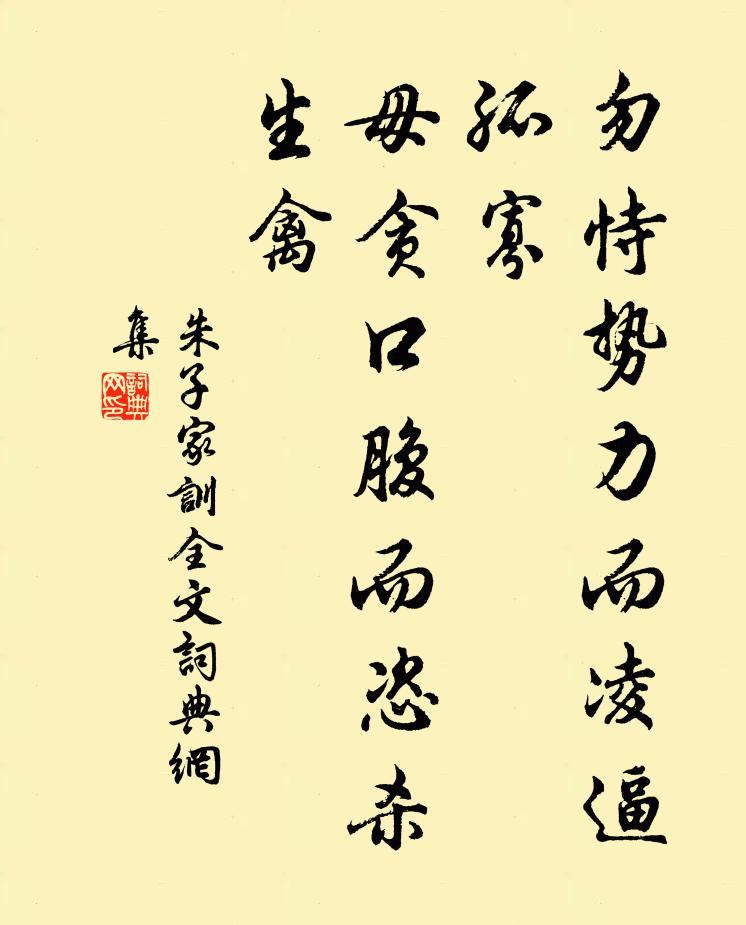 勿恃势力而凌逼
孤寡
毋贪口腹而恣杀
生禽
朱子家訓全文詞典網
集
詞典
网印